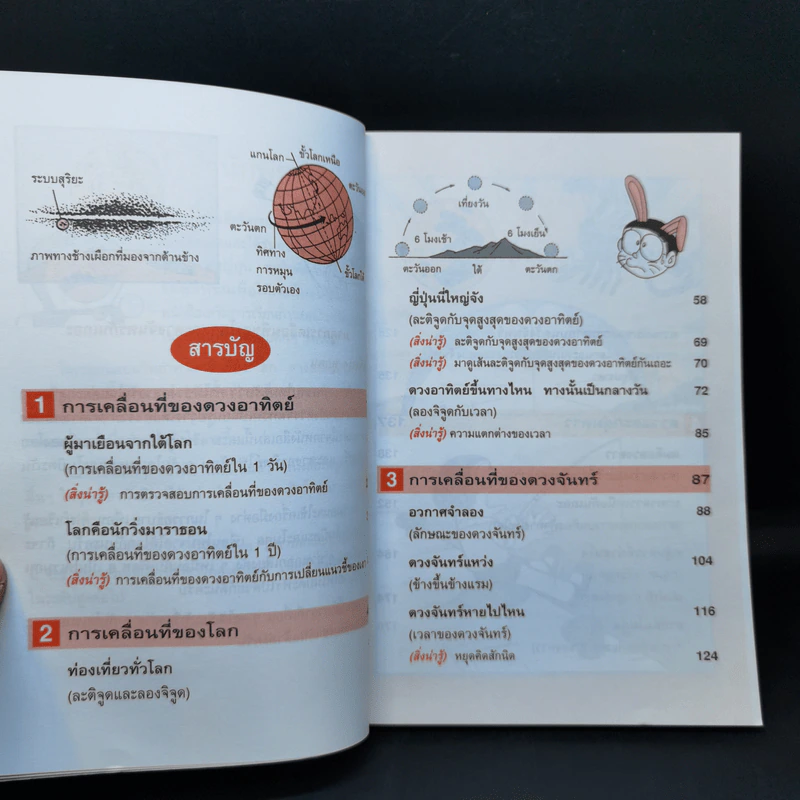 ระบบสุริยะ
ภาพทางช้างเผือกที่มองจากด้านข้าง
แกนโลก
ขั้วโลกเหนือ
ตะวันตก
ทิศทาง
การหมุน
รอบตัวเอง
สารบัญ
1 การเคลื่อนที่ของดวงอาทิตย์
ผู้มาเยือนจากใต้โลก
(การเคลื่อนที่ของดวงอาทิตย์ใน 1 วัน)
(สิ่งน่ารู้) การตรวจสอบการเคลื่อนที่ของดวงอาทิตย์
โลกคือนักวิ่งมาราธอน
(การเคลื่อนที่ของดวงอาทิตย์ใน 1 ปี)
(สิ่งน่ารู้) การเคลื่อนที่ของดวงอาทิตย์กับการเปลี่ยนแนวชี้ของเงา
2 การเคลื่อนที่ของโลก
ท่องเที่ยวทั่วโลก
(ละติจูดและลองจิจูด)
เที่ยงวัน
6 โมงเช้า 6 โมงเย็น
ตะวันออก ใต้ ตะวันตก
ญี่ปุ่นนี่ใหญ่จัง 58
(ละติจูดกับจุดสูงสุดของดวงอาทิตย์)
(สิ่งน่ารู้) ละติจูดกับจุดสูงสุดของดวงอาทิตย์ 69
(สิ่งน่ารู้) มาดูเส้นละติจูดกับจุดสูงสุดของดวงอาทิตย์กันเถอะ 70
ดวงอาทิตย์ขึ้นทางไหน ทางนั้นเป็นกลางวัน 72
(ลองจิจูดกับเวลา)
(สิ่งน่ารู้) ความแตกต่างของเวลา 85
3 การเคลื่อนที่ของดวงจันทร์ 87
อวกาศจำลอง 88
(ลักษณะของดวงจันทร์)
ดวงจันทร์แหว่ง 104
(ข้างขึ้นข้างแรม)
ดวงจันทร์หายไปไหน 116
(เวลาของดวงจันทร์)
(สิ่งน่ารู้) หยุดคิดสักนิด 124